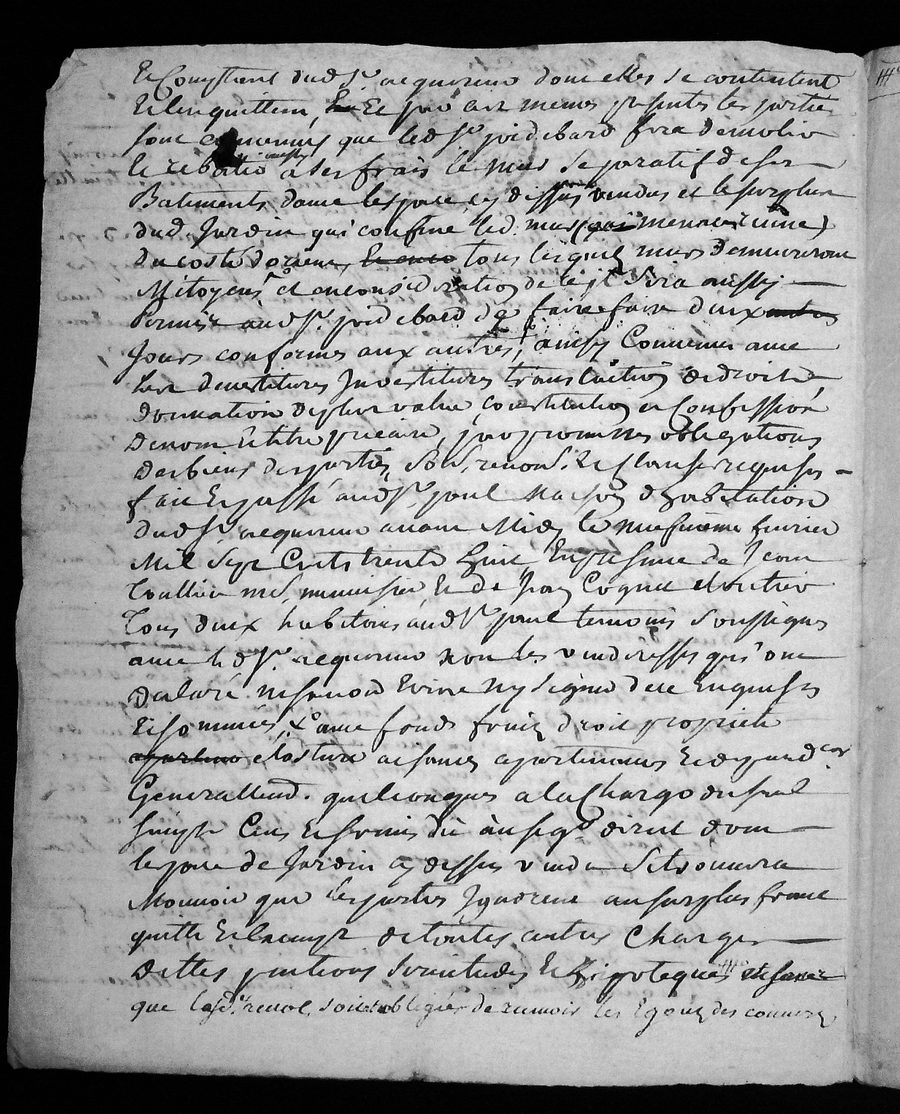 dud sr acquereur dont elles se contentent
Et l'en quittent, Et par ces mesmes presentes les parties
sont convenues que led sr poidebard fera demolir
le rebatir a ses frais le mur separatif de ses
Batiments dans lespace cy dessus vendus et le surplus
dud. Jardin qui confine led. mur menace ruine)
du costé dorient tous lesquels murs demeureront
Mitoyens et en consideration de ce Il sera aussy
permis aud sr. poidebard de faire faire deux
Jours conformes aux autres, ainsy Convenu avec
les devestitures Investitures translation de droits
donnation de plus value, constitution et Confession
de nom titre precaire, par promesses obligations
des biens des parties, sous, renon. et clauses requises
fait Et passé aud sr. paul Maison d'habitation
dud sr. acquereur avant Midy le fevrier
Mil Sept Cents trente huit, En presence de Jean
md, menuisier Et de Jean
Tous deux habitans aud sr. paul temoins soussignes
avec led sr. acquereur non les vendresses qui ont
declaré ne scavoir Ecrire Ny signer de ce Enquises
Et sommées, avec fonds fruits droit proprieté
closture aisances apartenances Et dependces
Generallemt. quelconques a la Charge du seul
simple Cens Et servis dû au seigr direct dont
le pare de Jardin cy dessus vendu se trouvera
Mouvoir que les parties Ignorent au surplus franc
quitte Et Exempt de toutes autres Charges
dettes pentions servitudes Et hipoteques
que lad. renol. soit obligée de recevoir les Egouts des couverts